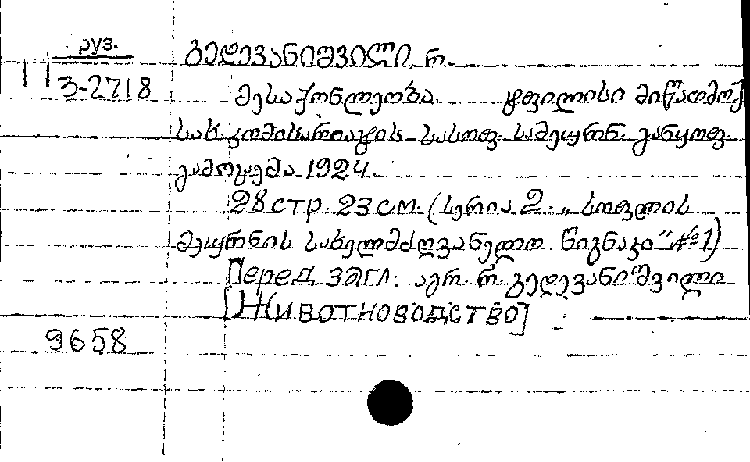 руз.
გედევანიშვილი რ.
3-2718
მესაქონლეობა ტფილისი მიწათმოქ
სახ. კომისარიატის სასოფ. სამეურნ. განყოფ.
გამოცემა 1924.
28 стр. 23 см. (სერია 2. „სოფლის
მეურნის სახელმძღვანელო წიგნაკი" №1)
Перед загл. აგრ. რ. გედევანიშვილი
[Животноводство]
9658